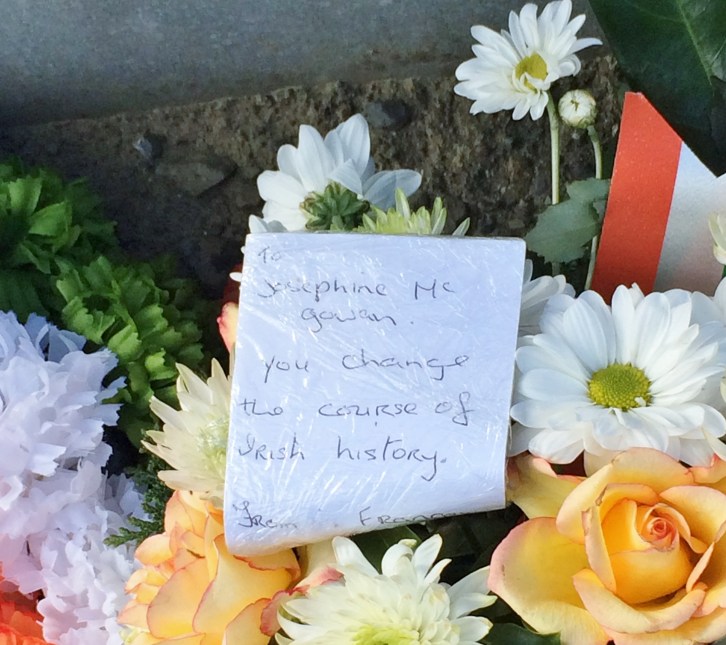 To
Josephine Mc
gowan.
you change
the course of
Irish history.
From